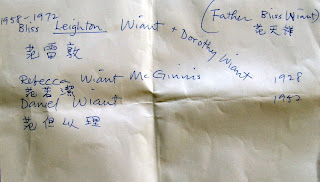 1958-1972
Bliss Leighton Wiant + Dorothy Wiant
(Father Bliss Wiant)
范天祥
范雷敦
Rebecca Wiant McGinnis 1928
范若潔
Daniel Wiant 1952
范但以理